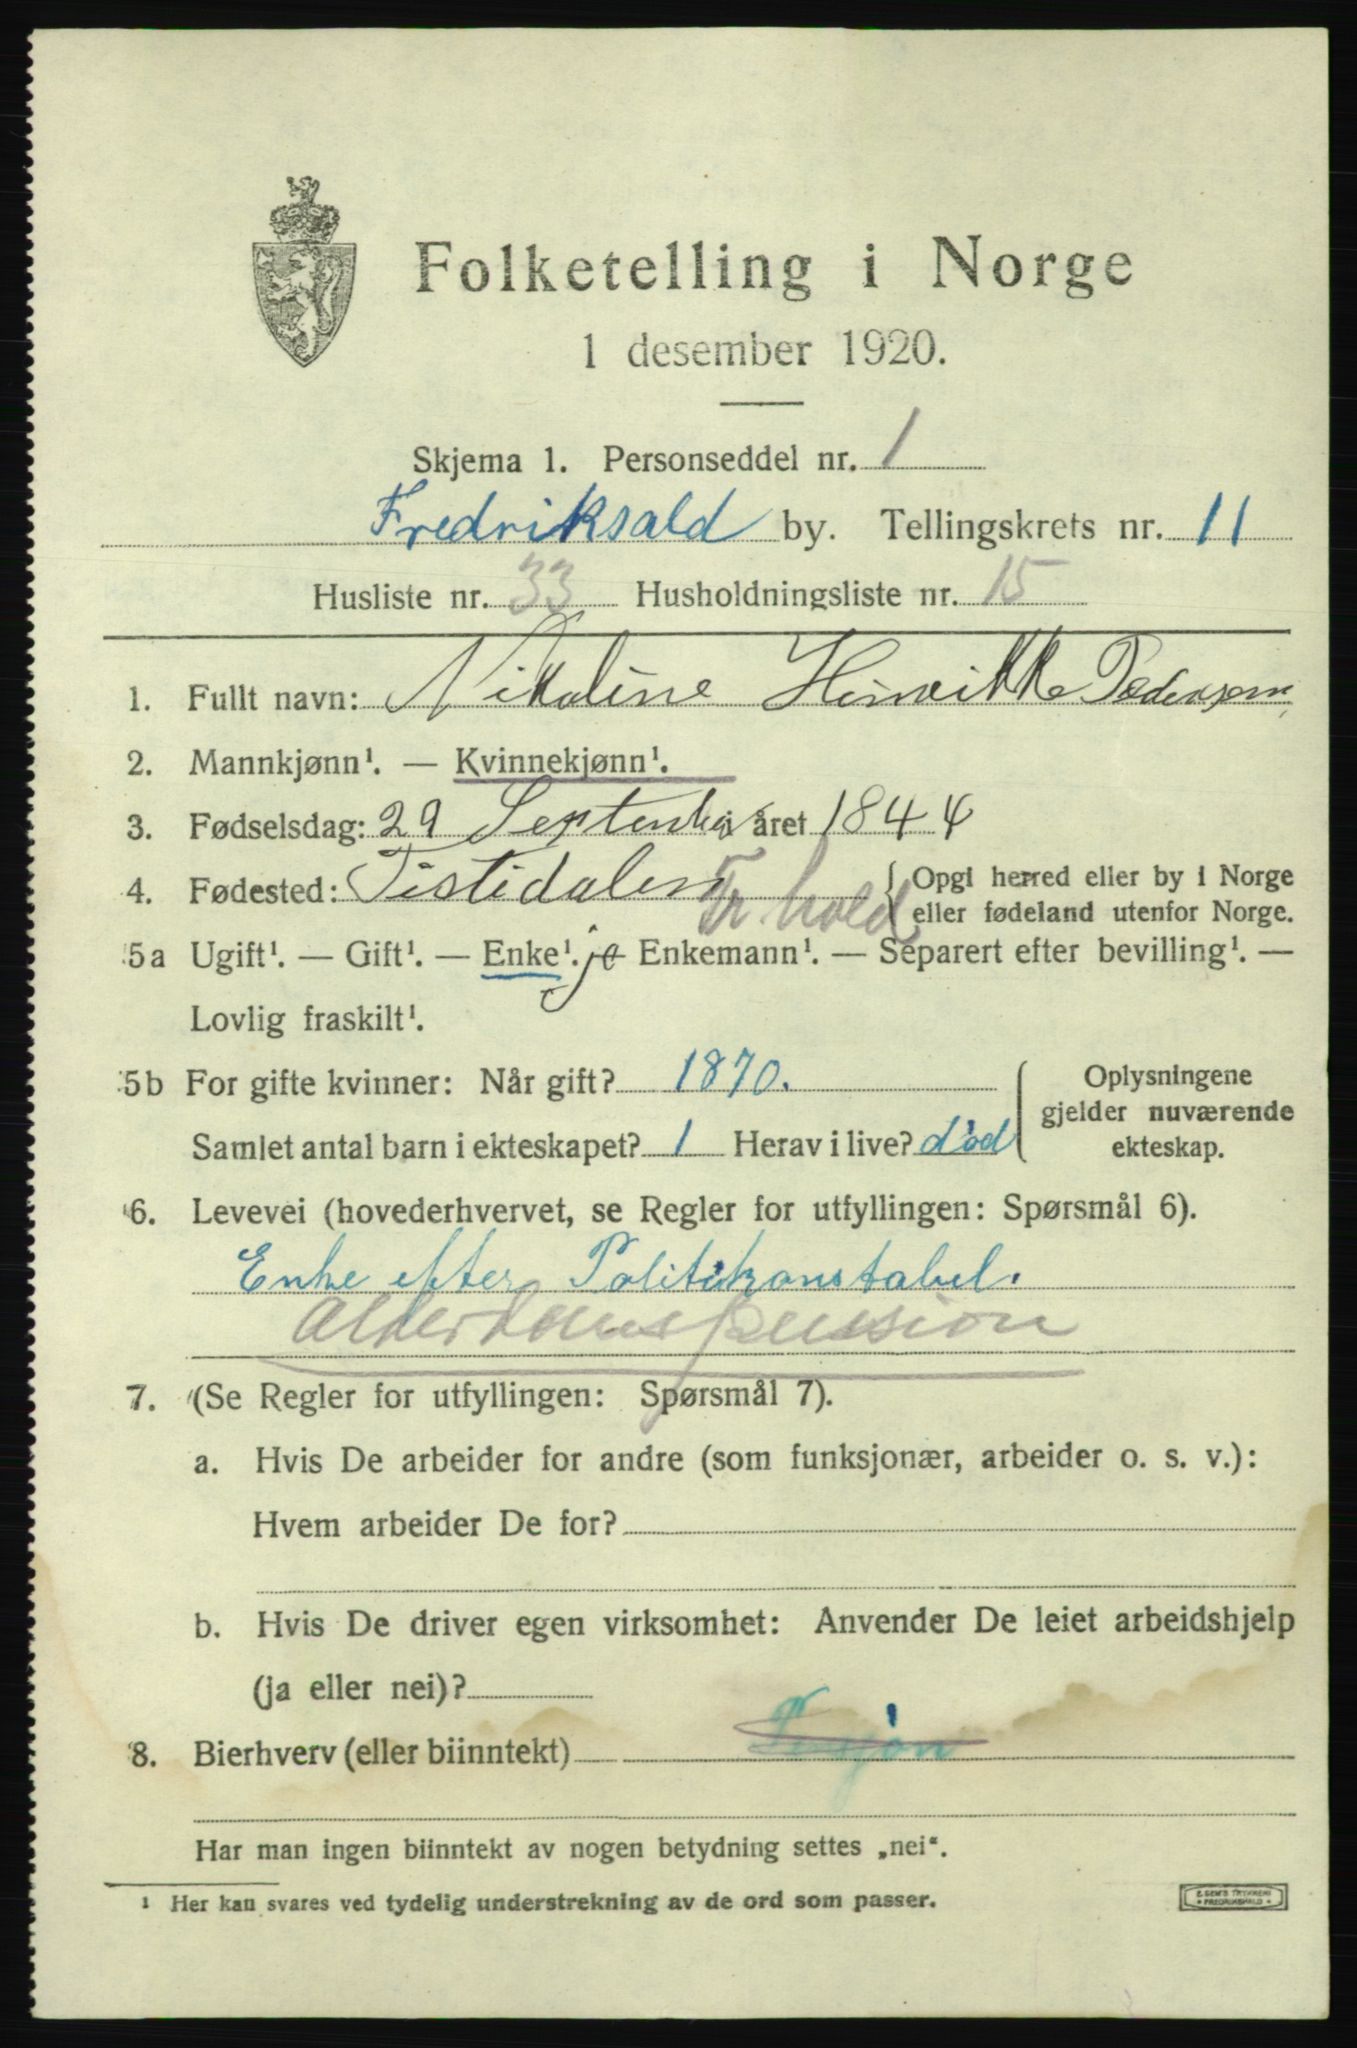 Folketelling i Norge
1 desember 1920.
Skjema 1. Personseddel nr. 1
Fredriksald by. Tellingskrets nr. 11
Husliste nr. 33 Husholdningsliste nr. 15
1. Fullt navn: Nikoline Henrikke Pedersen
2. Mannkjønn¹. — Kvinnekjønn¹.
3. Fødselsdag: 29 September året 1844
4. Fødested: Tistedalen Fr.hald { Opgi herred eller by i Norge
eller fødeland utenfor Norge.
5a Ugift¹. — Gift¹. — Enke¹. ja Enkemann¹. — Separert efter bevilling¹. —
Lovlig fraskilt¹.
5b For gifte kvinner: Når gift? 1870. Oplysningene
gjelder nuværende
Samlet antal barn i ekteskapet? 1 Herav i live? død ekteskap.
6. Levevei (hovederhvervet, se Regler for utfyllingen: Spørsmål 6).
Enke efter Politikonstabel.
Alderdomspension
7. (Se Regler for utfyllingen: Spørsmål 7).
a. Hvis De arbeider for andre (som funksjonær, arbeider o. s. v.):
Hvem arbeider De for?
b. Hvis De driver egen virksomhet: Anvender De leiet arbeidshjelp
(ja eller nei)?
8. Bierhverv (eller biinntekt)
Har man ingen biinntekt av nogen betydning settes „nei“.
¹ Her kan svares ved tydelig understrekning av de ord som passer.
E. SEM'S TRYKKERI
• FREDRIKSHALD •